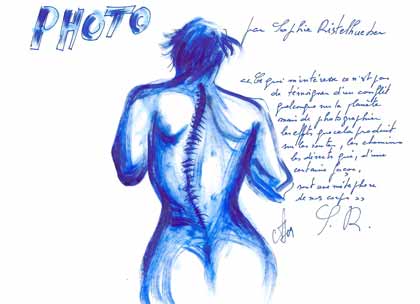 PHOTO
par Sophie Ristelhueber
« Ce qui m'intéresse ce n'est pas
de témoigner d'un conflit
quelconque sur la planète
mais de photographier
les effets que cela produit
sur les routes, les chemins
les déserts qui, d'une
certaine façon,
sont une métaphore
de nos corps »
S. R.